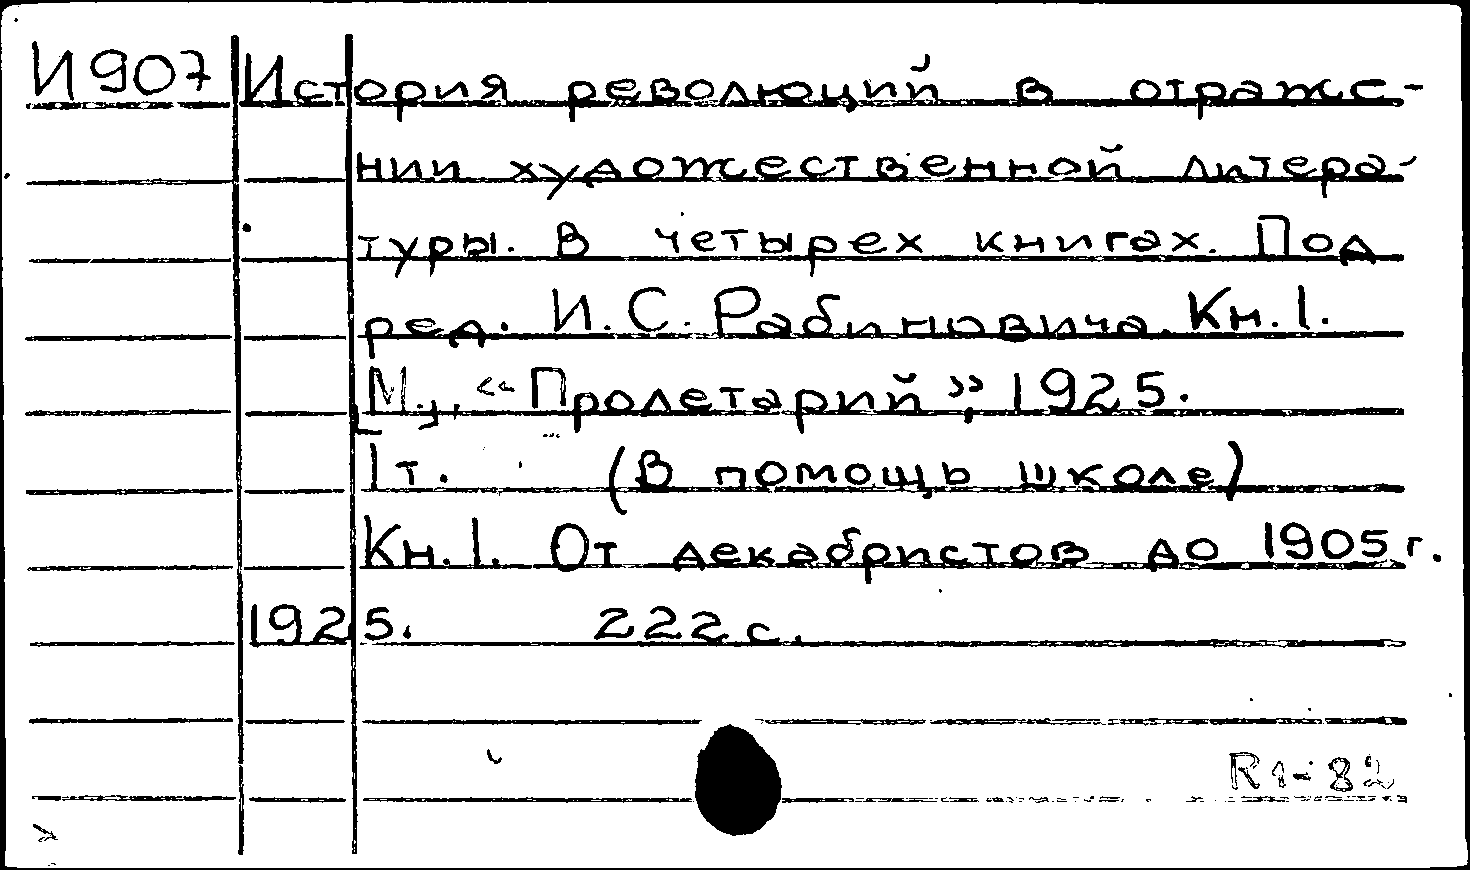 И907 История революций в отраже-
нии художественной литера-
туры. В четырех книгах. Под
ред. И.С. Рабиновича. Кн.1.
[М.], «Пролетарий», 1925.
1т. (В помощь школе)
Кн.1. От декабристов до 1905 г.
1925. 222 с.
R1-82